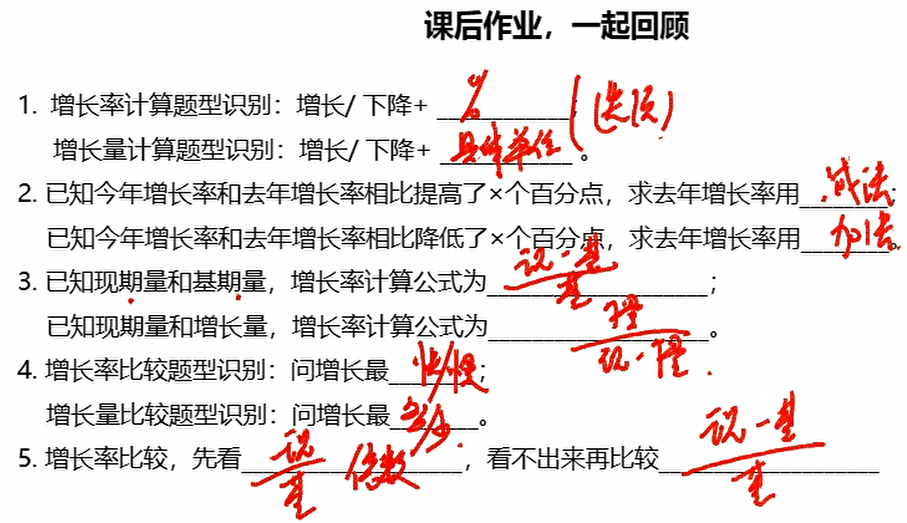 课后作业，一起回顾
1. 增长率计算题型识别：增长/ 下降+ % (选项)
增长量计算题型识别：增长/ 下降+ 具体单位。
2. 已知今年增长率和去年增长率相比提高了×个百分点，求去年增长率用减法；
已知今年增长率和去年增长率相比降低了×个百分点，求去年增长率用加法。
3. 已知现期量和基期量，增长率计算公式为 现-基/基；
已知现期量和增长量，增长率计算公式为 增/现-增。
4. 增长率比较题型识别：问增长最快/慢；
增长量比较题型识别：问增长最多/少。
5. 增长率比较，先看 现/基 倍数，看不出来再比较 现-基/基